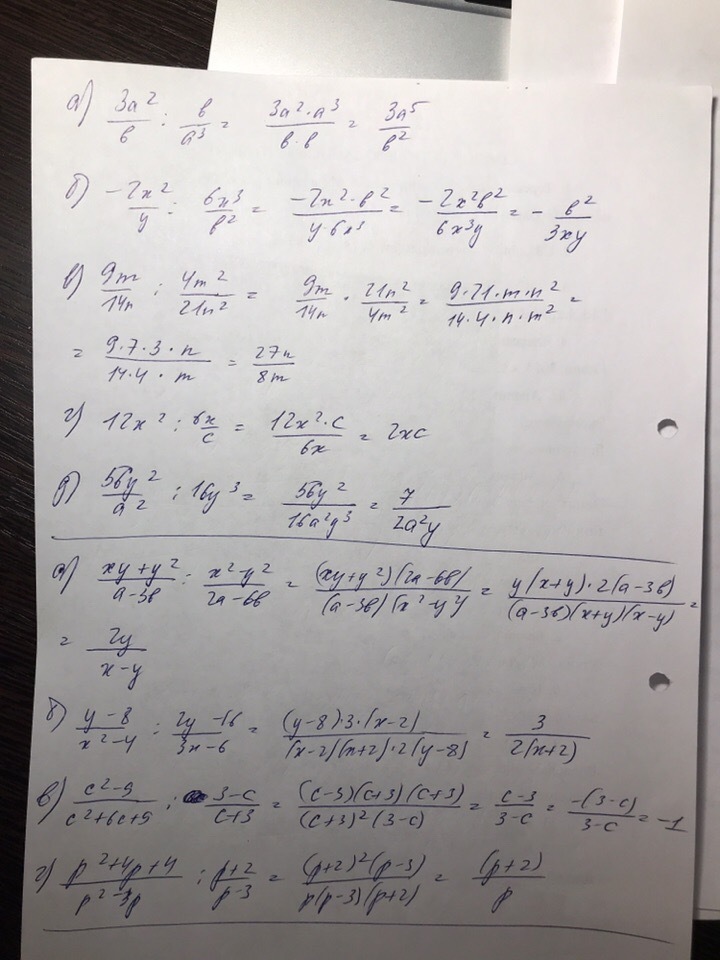 а) 3a²/в : в/a³ = 3a²·a³/в·в = 3a⁵/в²
б) -2x²/y : 6x³/в² = -2x²·в²/y·6x³ = -2x²в²/6x³y = - в²/3xy
в) 9m/14n : 4m²/21n² = 9m/14n · 21n²/4m² = 9·21·m·n²/14·4·n·m² =
= 9·7·3·n/14·4·m = 27n/8m
г) 12x² : 6x/c = 12x²·c/6x = 2xc
д) 56y²/a² : 16y³ = 56y²/16a²y³ = 7/2a²y
а) xy+y²/a-3в : x²-y²/2a-6в = (xy+y²)(2a-6в)/(a-3в)(x²-y²) = y(x+y)·2(a-3в)/(a-3в)(x+y)(x-y) =
= 2y/x-y
б) y-8/x²-4 : 2y-16/3x-6 = (y-8)·3·(x-2)/(x-2)(x+2)·2(y-8) = 3/2(x+2)
в) c²-9/c²+6c+9 : 3-c/c+3 = (c-3)(c+3)(c+3)/(c+3)²(3-c) = c-3/3-c = -(3-c)/3-c = -1
г) p²+4p+4/p²-3p : p+2/p-3 = (p+2)²(p-3)/p(p-3)(p+2) = (p+2)/p